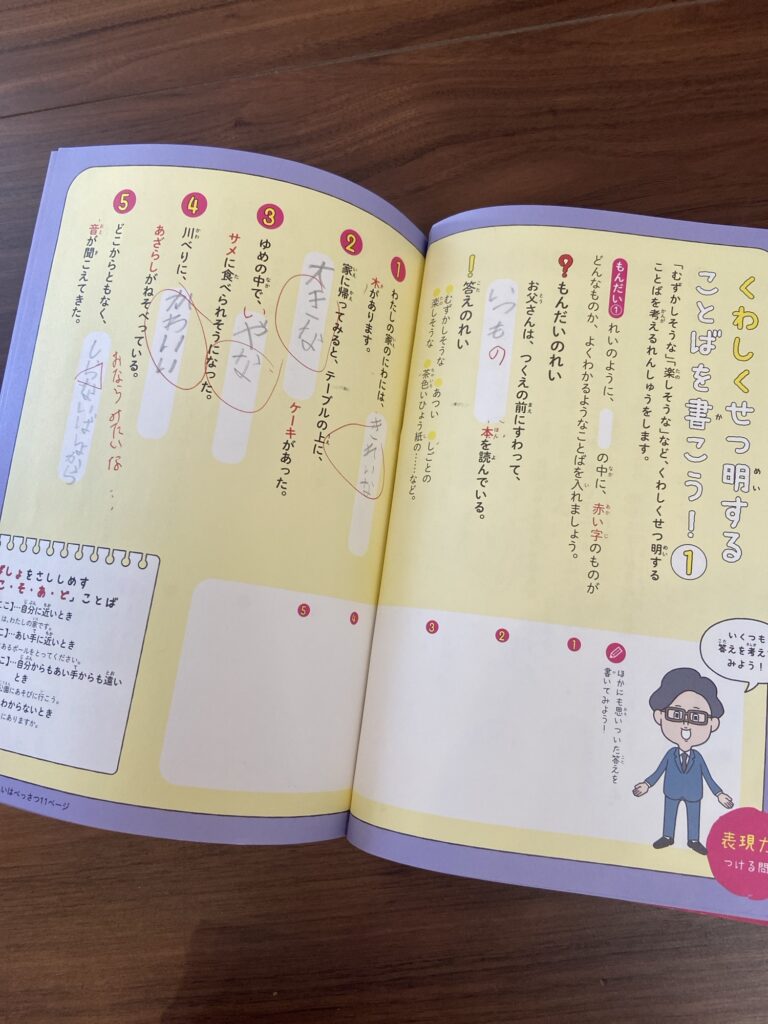 くわしくせつ明する
ことばを書こう！①
「むずかしそうな」「楽しそうな」など、くわしくせつ明する
ことばを考えるれんしゅうをします。
もんだい①
れいのように、 の中に、赤い字のものが
どんなものか、よくわかるようなことばを入れましょう。
？もんだいのれい
お父さんは、つくえの前にすわって、
いつもの 本を読んでいる。
！答えのれい
むずかしそうな あつい しごとの
楽しそうな 茶色いひょう紙の……など。
1 わたしの家のにわには、きれいな
木があります。
2 家に帰ってみると、テーブルの上に、
大きな ケーキがあった。
3 ゆめの中で、いやな
サメに食べられそうになった。
4 川べりに、かわいい
あざらしがねそべっている。
5 どこからともなく、おならみたいな…
しらないばしょから
音が聞こえてきた。
いくつも
答えを考えて
みよう！
ほかにも思いついた答えを
書いてみよう！
1
2
3
4
5
表現力
つける問
ばしょをさししめす
こ・そ・あ・ど」ことば
ここ】…自分に近いとき
は、わたしの家です。
こ】…あい手に近いとき
あるボールをとってください。
こ】…自分からもあい手からも遠い
とき
公園にあそびに行こう。
わからないとき
にありますか。
いはべっさつ11ページ